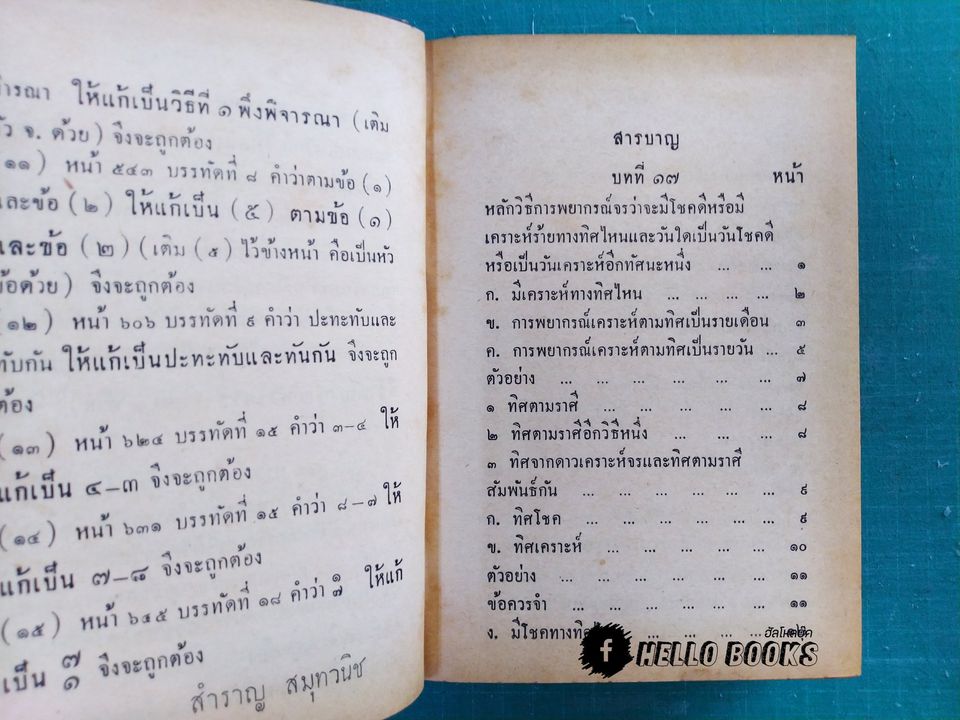 ให้แก้เป็นวิธีที่ ๑ พึงพิจารณา (เติม
จ. ด้วย) จึงจะถูกต้อง
(๑๑) หน้า ๕๔๓ บรรทัดที่ ๘ คำว่าตามข้อ (๑)
และข้อ (๒) ให้แก้เป็น (๕) ตามข้อ (๑)
และข้อ (๒) (เติม (๕) ไว้ข้างหน้า คือเป็นหัว
ข้อด้วย) จึงจะถูกต้อง
(๑๒) หน้า ๖๐๖ บรรทัดที่ ๙ คำว่า ปะทะทับและ
ทับกัน ให้แก้เป็นปะทะทับและทันกัน จึงจะถูก
ต้อง
(๑๓) หน้า ๖๒๔ บรรทัดที่ ๑๕ คำว่า ๓-๔ ให้
แก้เป็น ๔-๓ จึงจะถูกต้อง
(๑๔) หน้า ๖๓๑ บรรทัดที่ ๑๕ คำว่า ๘-๗ ให้
แก้เป็น ๗-๘ จึงจะถูกต้อง
(๑๕) หน้า ๖๔๕ บรรทัดที่ ๑๘ คำว่า ๑/๗ ให้แก้
เป็น ๗/๑ จึงจะถูกต้อง
สำราญ สมุทวนิช
สารบาญ
บทที่ ๑๗ หน้า
หลักวิธีการพยากรณ์จรว่าจะมีโชคดีหรือมี
เคราะห์ร้ายทางทิศไหนและวันใดเป็นวันโชคดี
หรือเป็นวันเคราะห์อีกทัศนะหนึ่ง ... ... ๑
ก. มีเคราะห์ทางทิศไหน ... ... ... ... ๒
ข. การพยากรณ์เคราะห์ตามทิศเป็นรายเดือน ๓
ค. การพยากรณ์เคราะห์ตามทิศเป็นรายวัน ... ๕
ตัวอย่าง ... ... ... ... ... ... ๗
๑ ทิศตามราศี ... ... ... ... ... ๘
๒ ทิศตามราศีอีกวิธีหนึ่ง ... ... ... ๘
๓ ทิศจากดาวเคราะห์จรและทิศตามราศี
สัมพันธ์กัน ... ... ... ... ... ... ๙
ก. ทิศโชค ... ... ... ... ... ... ๙
ข. ทิศเคราะห์ ... ... ... ... ... ๑๐
ตัวอย่าง ... ... ... ... ... ... ๑๑
ข้อควรจำ ... ... ... ... ... ... ๑๑
ง. มีโชคทาง ... ... ... ...
ฮัลโหลบุ๊ค
f HELLO BOOKS